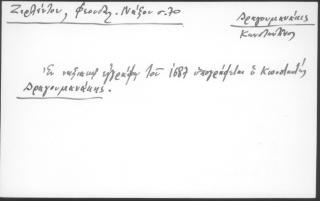 Ζερλέντου, Φεουδ. Νάξου σ.70
Δραγουμανάκης
Κωνσταντῖνος
Ἐν ναξιακῷ ἐγγράφῳ τοῦ 1687 ὑπογράφεται ὁ Κωνσταντῆς
Δραγουμανάκης.